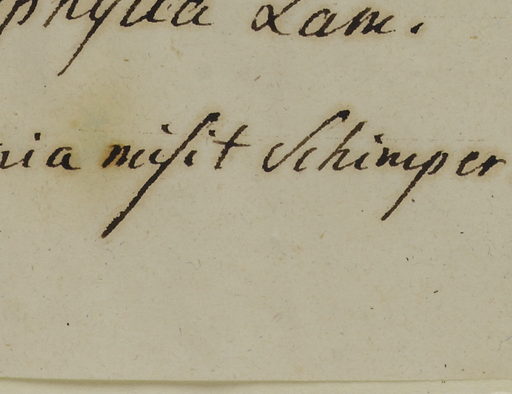 phylla Lam.
nia misit Schimper